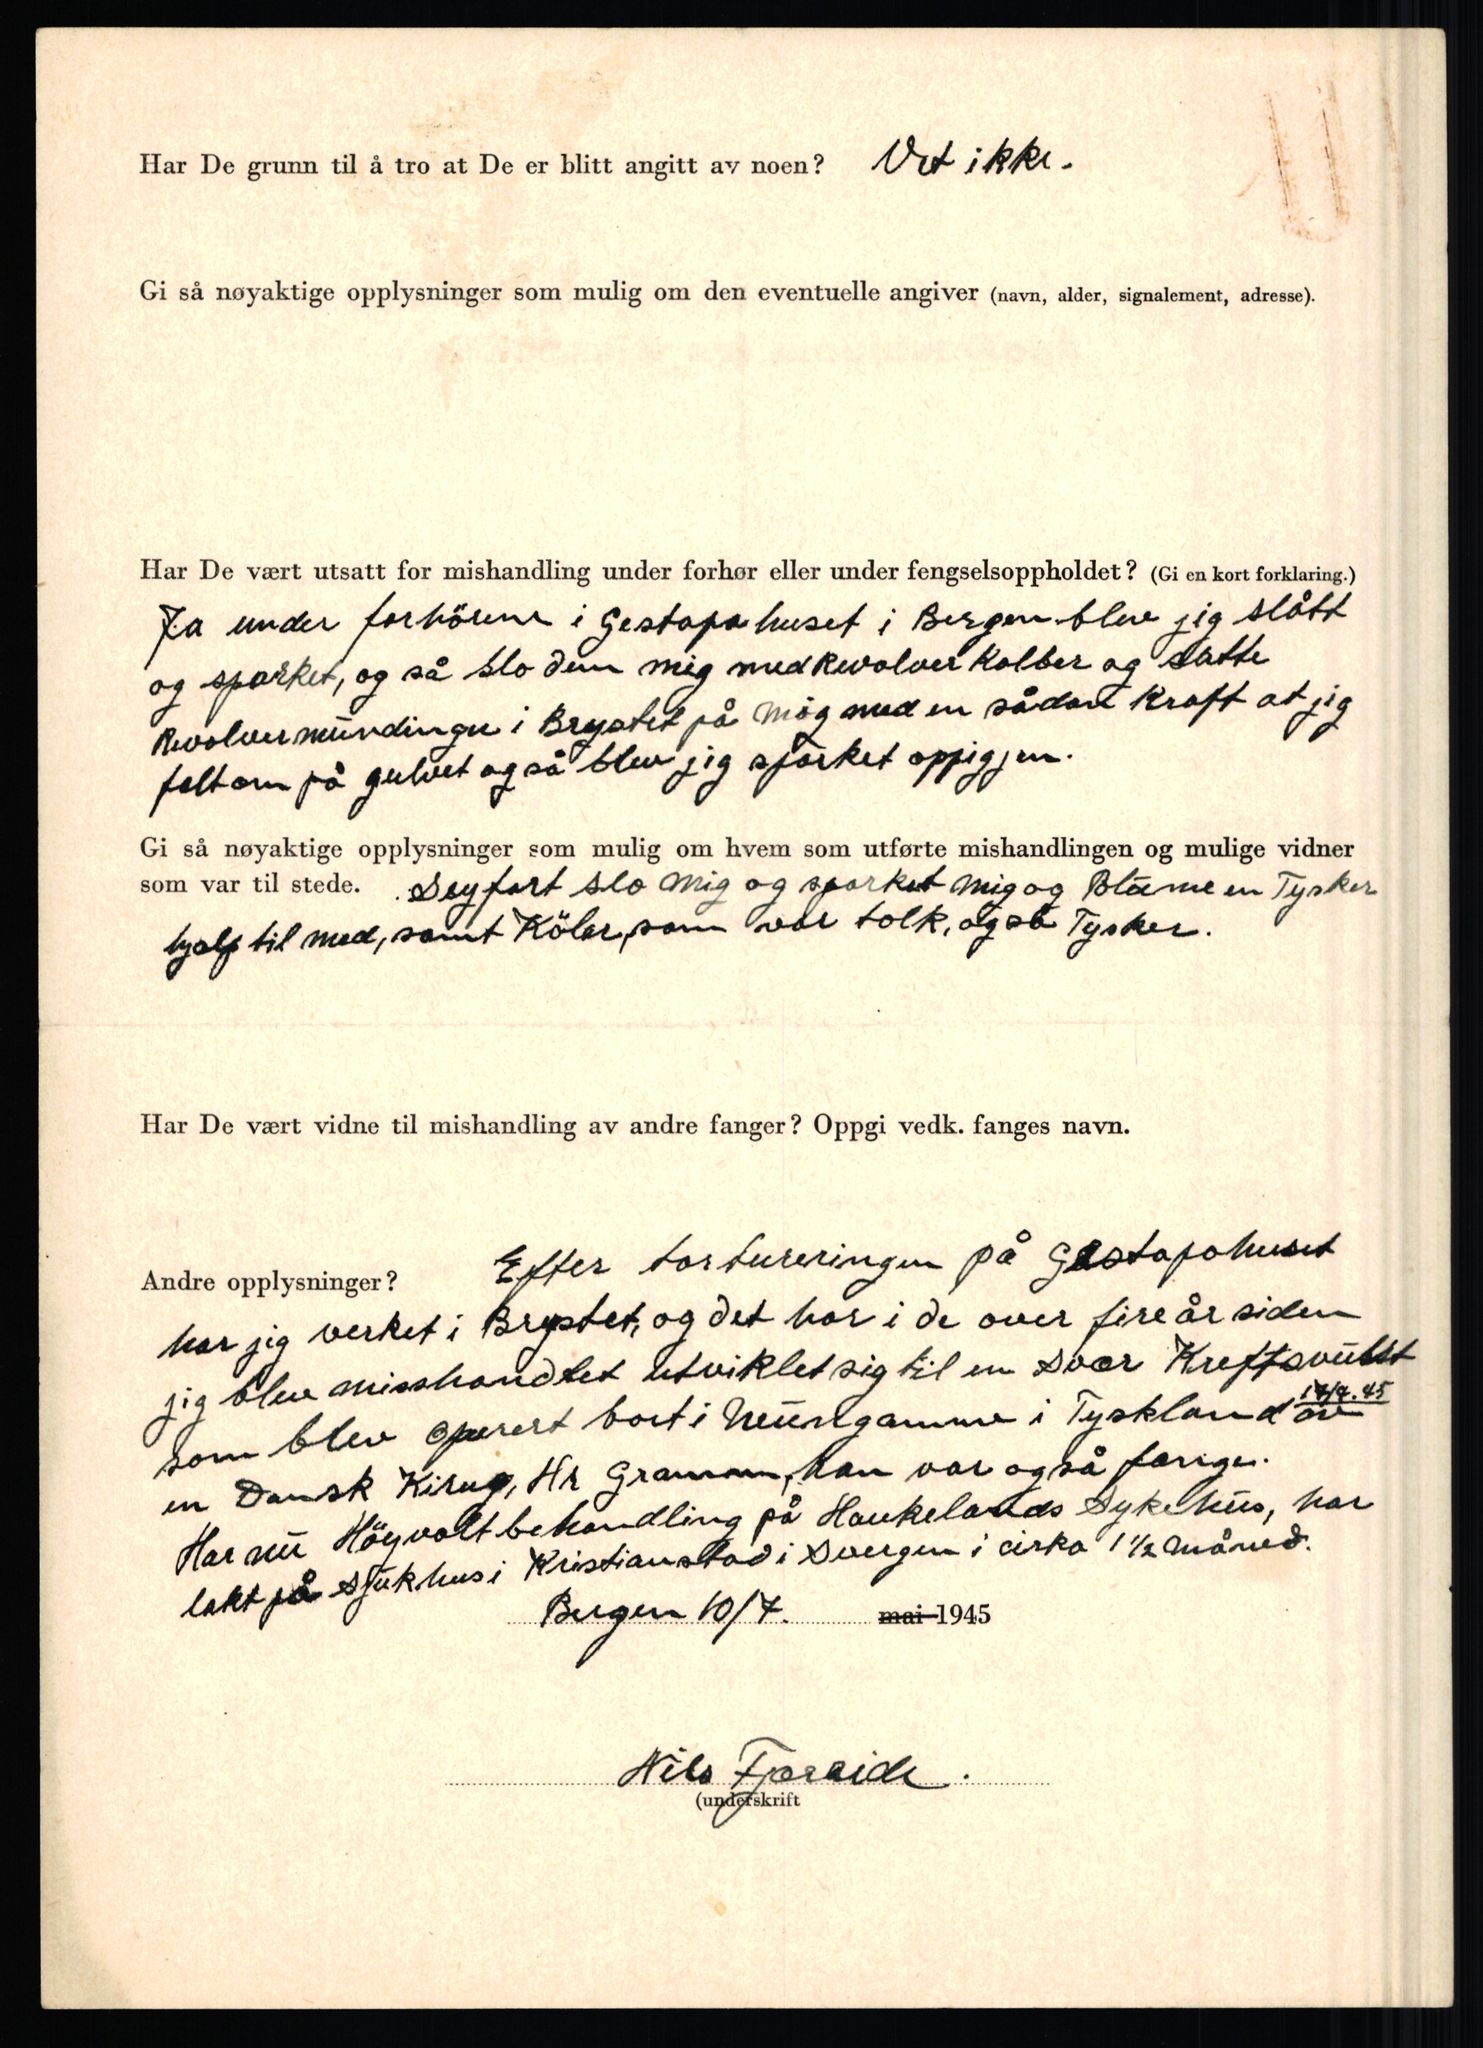 Har De grunn til å tro at De er blitt angitt av noen? Vet ikke.
Gi så nøyaktige opplysninger som mulig om den eventuelle angiver (navn, alder, signalement, adresse).
Har De vært utsatt for mishandling under forhør eller under fengselsoppholdet? (Gi en kort forklaring.)
Ja under forhörene i Gestapohuset i Bergen blev jig slått
og sparket, og så slo dem mig med Revolver Kolber og satte
Revolvermündingen i Brystet på mig med en sådan Kraft at jig
falt om på gulvet og så blev jig sparket opp igjen.
Gi så nøyaktige opplysninger som mulig om hvem som utførte mishandlingen og mulige vidner
som var til stede. Seyfart slo mig og sparket mig og Blüme en Tysker
hjalp til med, samt Köler, som var tolk, også Tysker.
Har De vært vidne til mishandling av andre fanger? Oppgi vedk. fanges navn.
Andre opplysninger? Efter tortureringen på Gestapohuset
har jig verket i Brystet, og det har i de over fire år siden
jig blev misshandlet utviklet sig til en svær Kreftsvülst
som blev operert bort i Neüngamme i Tyskland av
en Dansk Kirug, Hr Gramm, han var også fange.
Har nü Höyvolt behandling på Haukelands Sykehüs, har
lakt på Sjükhus i Kristianstad i Svergen i cirka 1 1/2 måned.
Bergen 10/7. mai 1945
Nils Fjæreide.
(underskrift